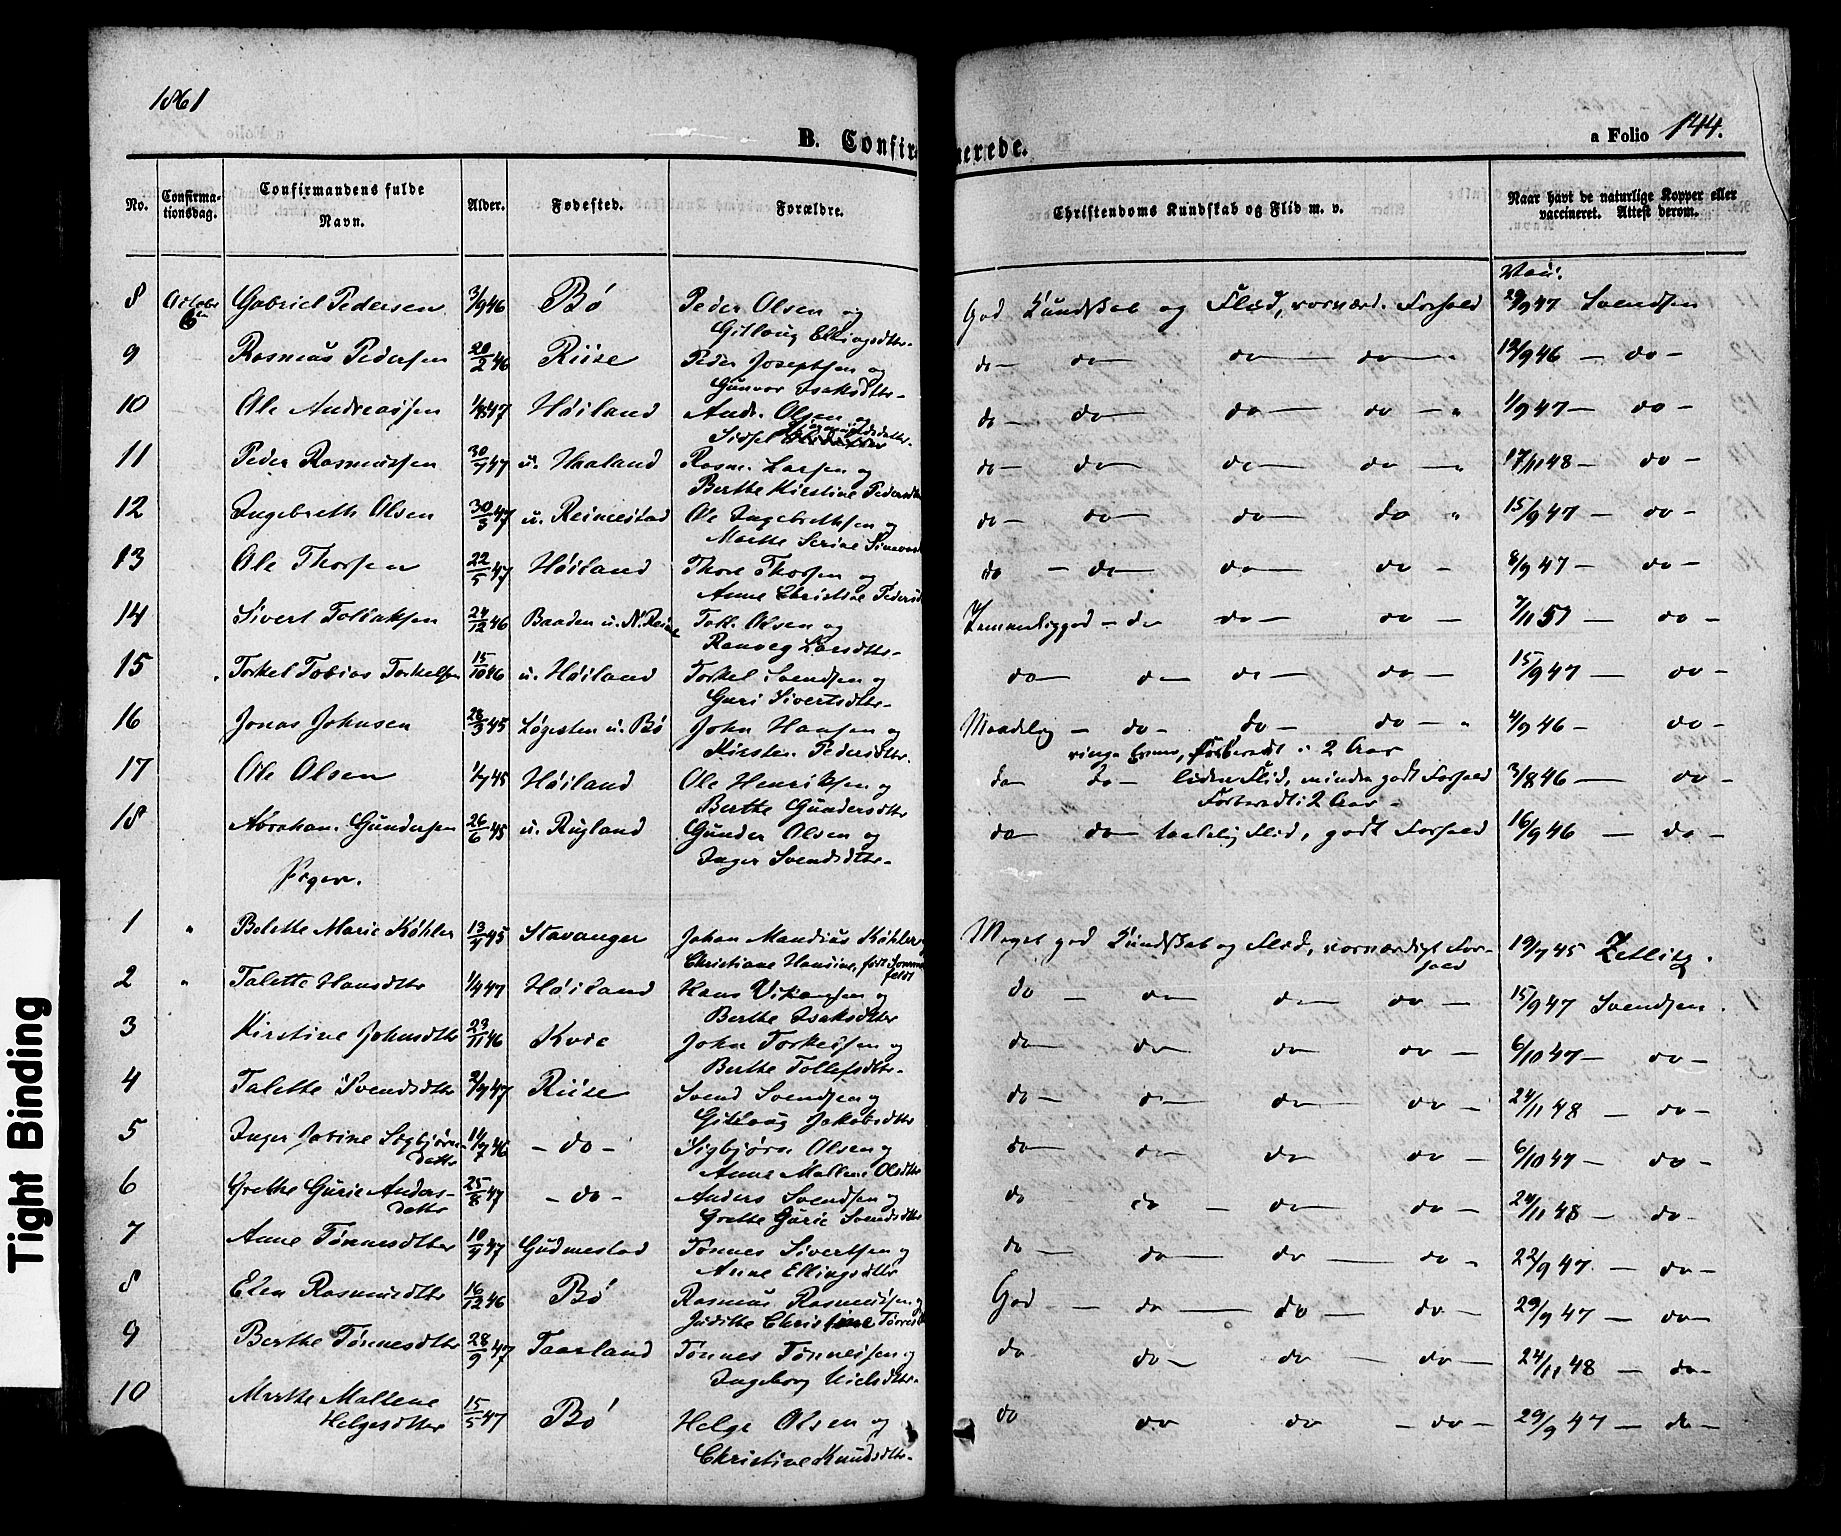 1861
B. Confirmerede.
a Folio 144.
No. Confirmationsdag. Confirmandens fulde Navn. Alder. Fødested. Forældre. Christendoms Kundskab og Flid m. v. Naar havt de naturlige Kopper eller vaccineret. Attest derom.
Vacc:
8 October 6te Gabriel Pedersen 3/9 46 Bø Peder Olsen og God Kundskab og Flid, vorværd. Forhold 29/9 47 Svendsen
Gitlaug Ellingsdtr.
9 Rasmus Pedersen 20/2 46 Riise Peder Josephsen og do do do do " 12/9 46 — do —
Gunvor Isaksdttr.
10 Ole Andreassen 47 Høiland Andr. Olsen og do do do do " 1/9 47 — do —
Sidsel
11 Peder Rasmussen 30/7 47 u. Haaland Rasm. Larsen og do do do do " 17/11 48 — do —
Berthe Kirstine Pedersdtr
12 Ingebreth Olsen 30/3 47 u. Reimestad Ole Ingebrethsen og do do do do " 15/9 47 — do —
Marthe Serine Simons
13 Ole Thorsen 22/5 47 Høiland Thore Thorsen og do do do do — 8/9 47 — do —
Anne Christine Pedersd
14 Sivert Tollaksen 24/12 46 Baaden u. N. Reime Toll. Olsen og Temmelig god — do do — do — 7/11 51 — do —
Ranveg Larsdttr.
15 Torkel Tobias Torkelsen 15/10 46 u. Høiland Torkel Svendsen og do do do do — 15/9 47 — do —
Guri Sivertsdttr.
16 Jonas Johnsen 28/3 45 Løgesten u. Bø John Hansen og Maadelig — do — do — do — " 4/9 46 — do —
Kirsten Pedersdttr.
ringe Evne, Forberedt i 2 Aar
17 Ole Olsen 1/7 45 Høiland Ole Henriksen og do do — liden Flid, mindre godt Forhold 3/8 46 — do —
Berthe Gundersdttr
Forberedt i 2 Aar —
18 Abraham Gundersen 26/6 45 u. Rugland Gunder Olsen og do do taalelig Flid, godt Forhold 16/9 46 — do —
Inger Svendsdttr.
Piger.
1 " Bolette Marie Køhler 13/4 45 Stavanger Johan Mandius Køhler og Meget god Kundskab og Flid, vorværdigt Forhold 19/7 45 Zetlitz.
Christiane Hansine, født Sommerfeldt
2 " Talette Hansdttr 1/4 47 Høiland Hans Vikansen og do — do do do — 15/9 47 Svendsen.
Berthe Isaksdttr
3 Kirstine Johnsdttr 23/11 46 Kvie John Torkelsen og do do do do — 6/10 47 — do —
Berthe Tollefsdttr.
4 Talette Svendsdttr 2/7 47 Riise Svend Svendsen og do — do — do do — 24/11 48 — do —
Gitlaug Jakobsdttr
5 Inger Jorine Sigbjørns- 11/7 46 — do — Sigbjørn Olsen og do do do do — 6/10 47 — do —
datter
Anne Mallene Olsdttr
6 Grethe Gurie Anders- 25/8 47 — do — Anders Svendsen og do do — do do — 24/11 48 — do —
datter
Grethe Gurie Svendsdttr
7 Anne Tønnesdtter 10/4 47 Gudmestad Tønnes Sivertsen og do — do — do do 22/9 47 — do —
Anne Ellingsdttr
8 Elen Rasmusdttr 16/12 46 Bø Rasmus Rasmussen og God — do — do — do — 29/9 47 — do —
Judithe Christine Tørres
9 Berthe Tønnesdttr 28/9 47 Taarland Tønnes Tønnesen og do do — do — do — 24/11 48 — do —
Ingeborg Nielsdttr.
10 Marthe Mallene 15/5 47 Bø Helge Olsen og do do do — do — 29/9 47 — do —
Helgesdtter
Christine Knudsdttr.
Tight Binding